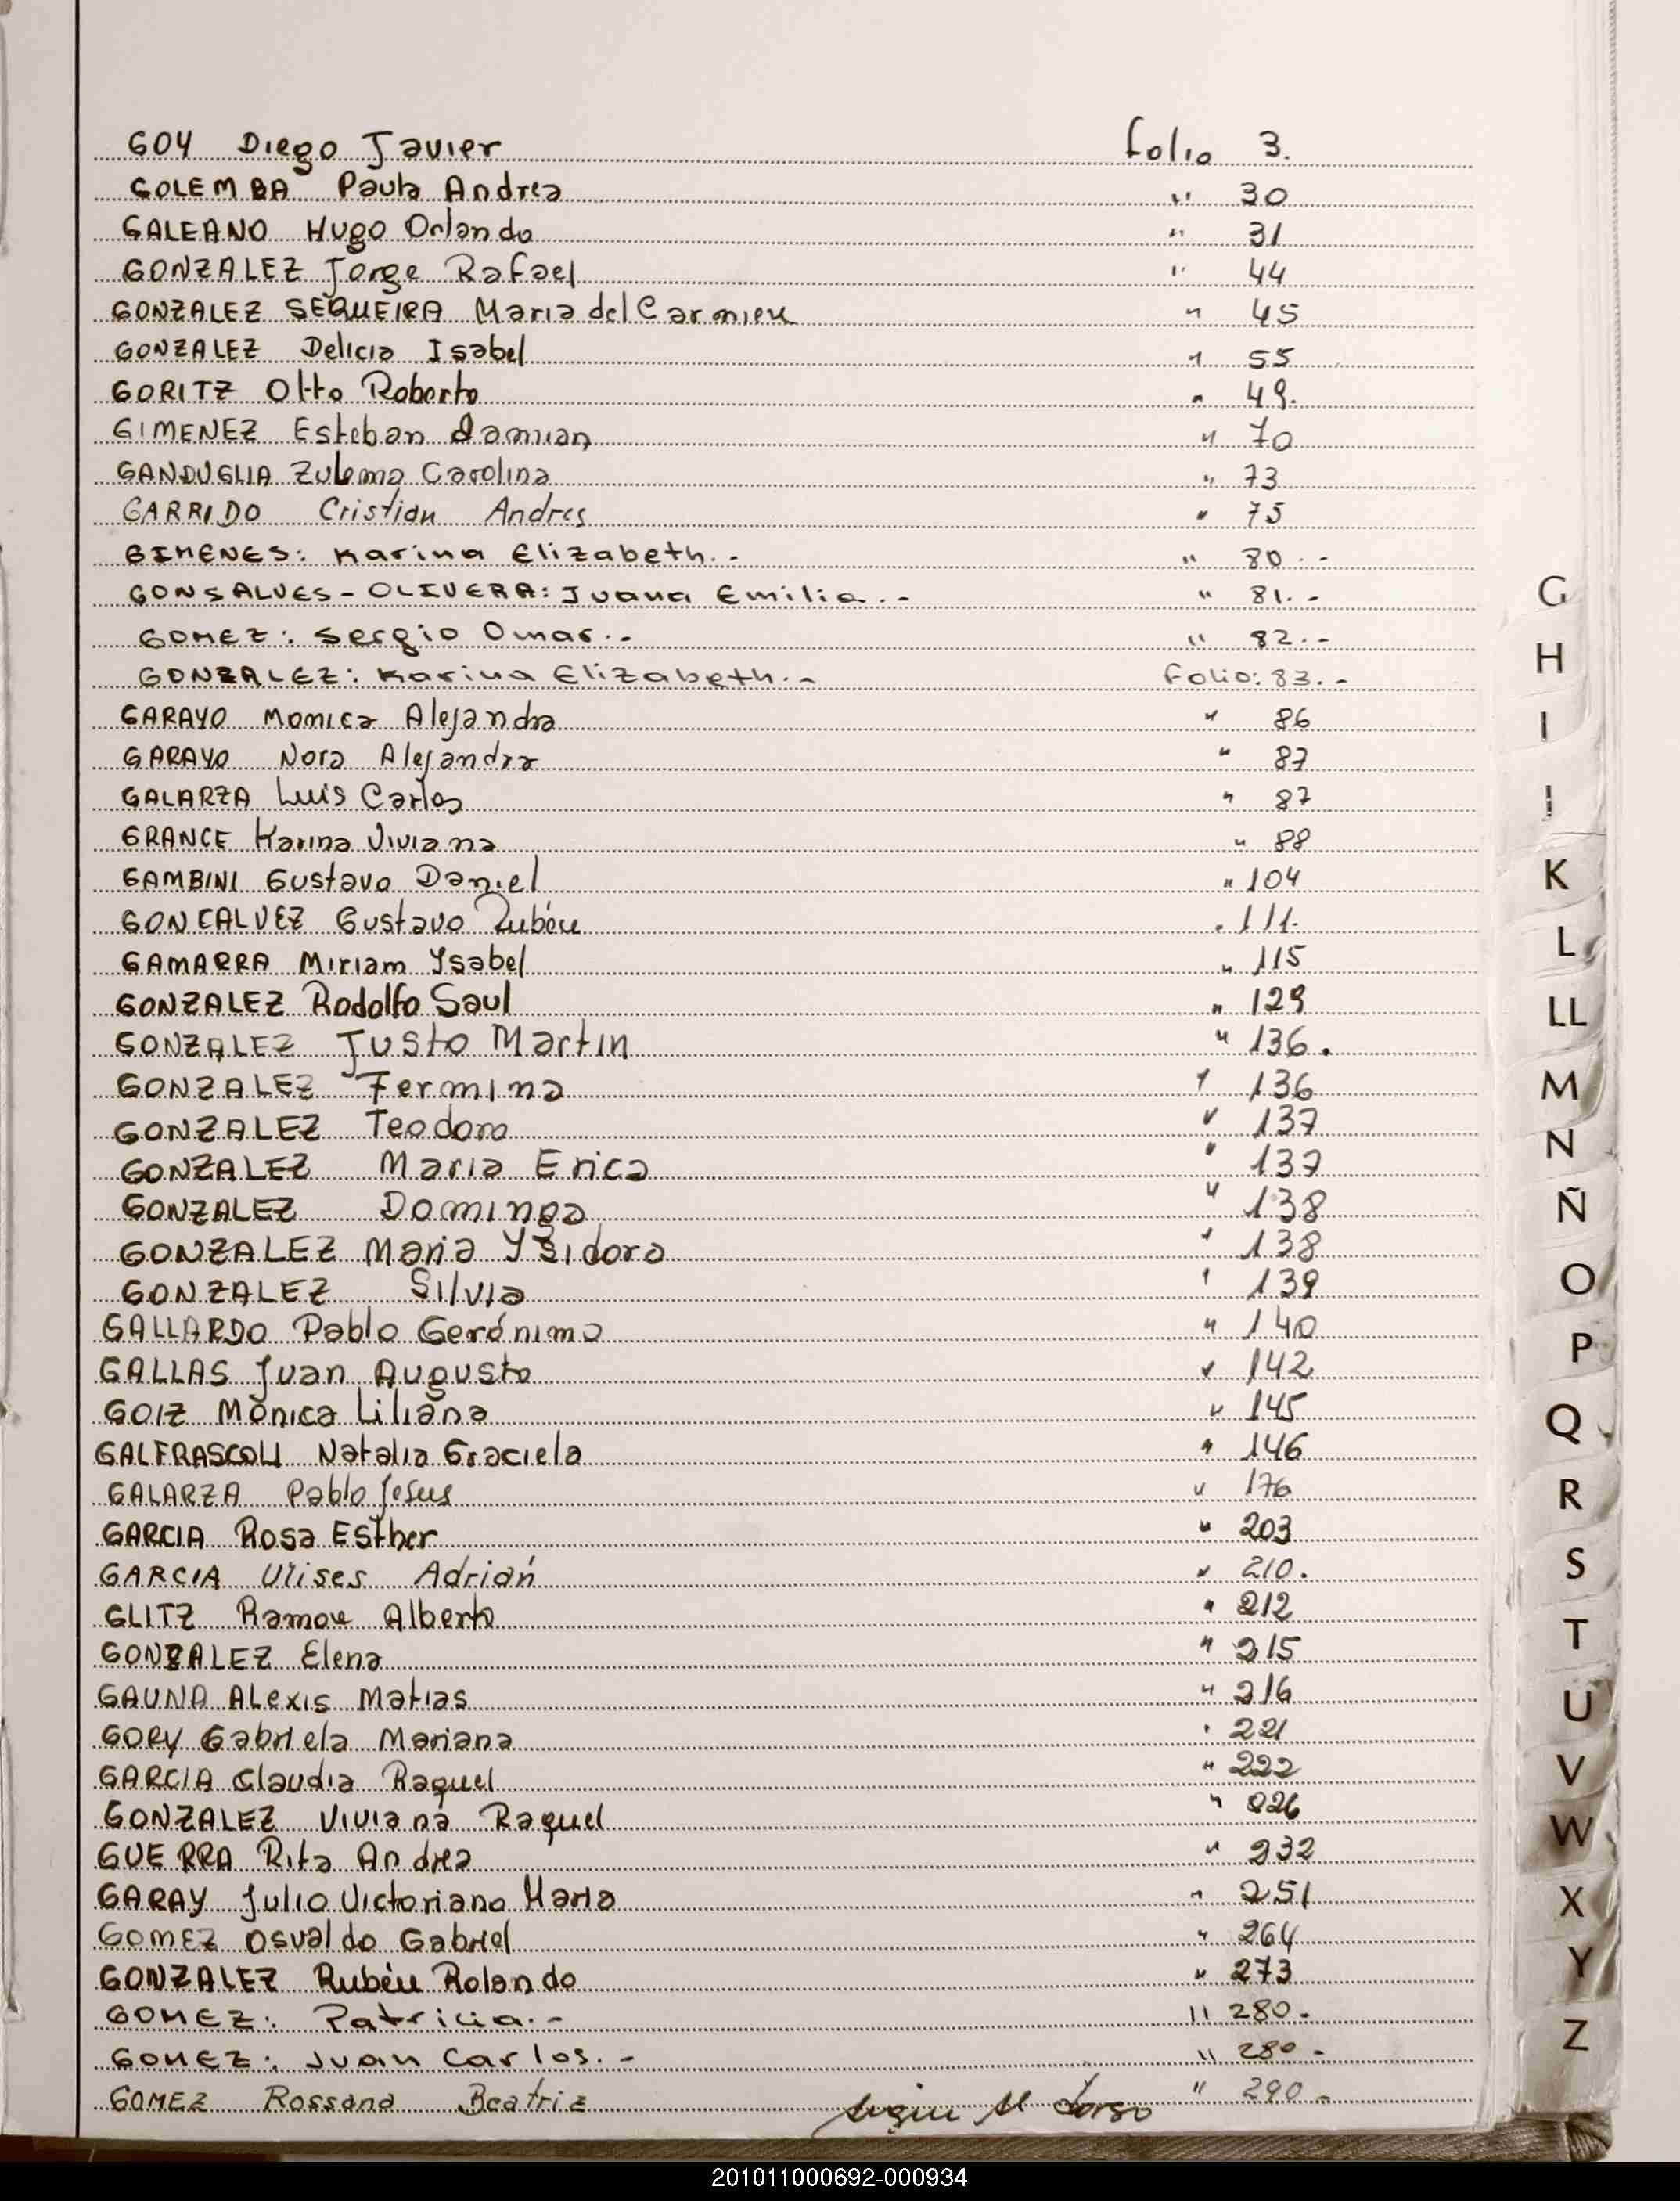 GOY Diego Javier folio 3.
GOLEMBA Paula Andrea " 30
GALEANO Hugo Orlando " 31
GONZALEZ Jorge Rafael " 44
GONZALEZ SEQUEIRA Maria del Carmen " 45
GONZALEZ Delicia Isabel " 55
GORITZ Otto Roberto " 49.
GIMENEZ Esteban Damian " 70
GANDUGLIA Zulema Carolina " 73
GARRIDO Cristian Andres " 75
GIMENES: Karina Elizabeth.- " 80.-
GONSALVES-OLIVERA: Juana Emilia.- " 81.-
GOMEZ: Sergio Omar.- " 82.-
GONZALEZ: Karina Elizabeth.- Folio: 83.-
GARAYO Monica Alejandra " 86
GARAYO Nora Alejandra " 87
GALARZA Luis Carlos " 87
GRANCE Karina Viviana " 88
GAMBINI Gustavo Daniel " 104
GONCALVEZ Gustavo Rubén " 111.
GAMARRA Miriam Ysabel " 115
GONZALEZ Rodolfo Saul " 129
GONZALEZ Justo Martin " 136.
GONZALEZ Fermina " 136
GONZALEZ Teodoro " 137
GONZALEZ Maria Erica " 137
GONZALEZ Dominga " 138
GONZALEZ Maria Ysidora " 138
GONZALEZ Silvia " 139
GALLARDO Pablo Gerónimo " 140
GALLAS Juan Augusto " 142
GOIZ Mónica Liliana " 145
GALFRASCOLI Natalia Graciela " 146
GALARZA Pablo Jesus " 176
GARCIA Rosa Esther " 203
GARCIA Ulises Adrián " 210.
GLITZ Ramon Alberto " 212
GONZALEZ Elena " 215
GAUNA Alexis Matias " 216
GORY Gabriela Mariana " 221
GARCIA Claudia Raquel " 222
GONZALEZ Viviana Raquel " 226
GUERRA Rita Andrea " 232
GARAY Julio Victoriano Maria " 251
GOMEZ Osvaldo Gabriel " 264
GONZALEZ Rubén Rolando " 273
GOMEZ: Patricia.- " 280.
GOMEZ: Juan Carlos.- " 280-
GOMEZ Rossana Beatriz " 290-
G
H
I
K
L
LL
M
N
Ñ
O
P
Q
R
S
T
U
V
W
X
Y
Z
201011000692-000934